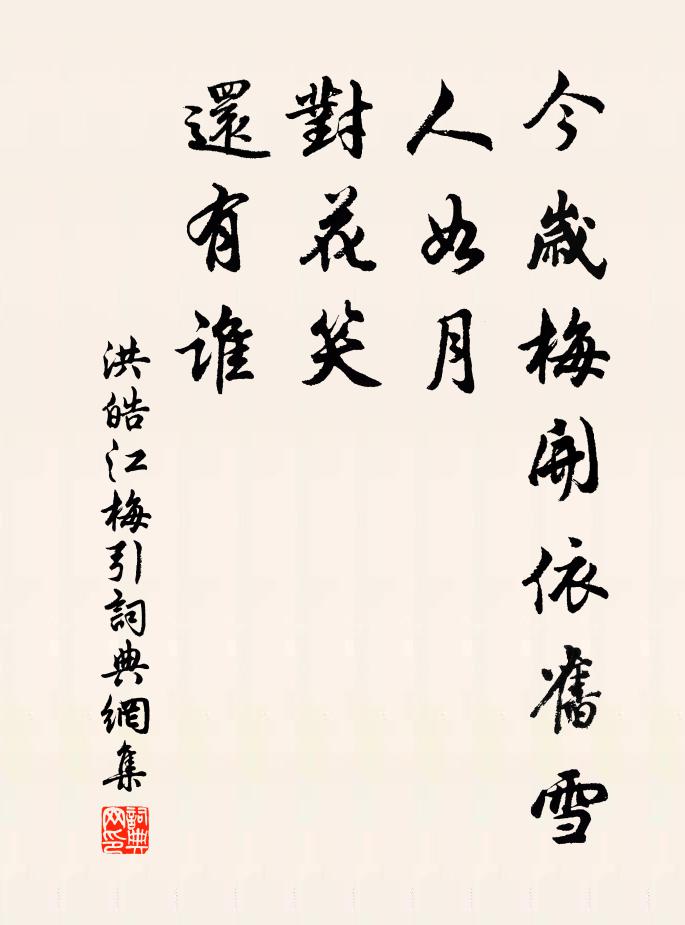 今歲梅開依舊雪
人如月
對花笑
還有誰
洪皓江梅引詞典網集
詞典网印